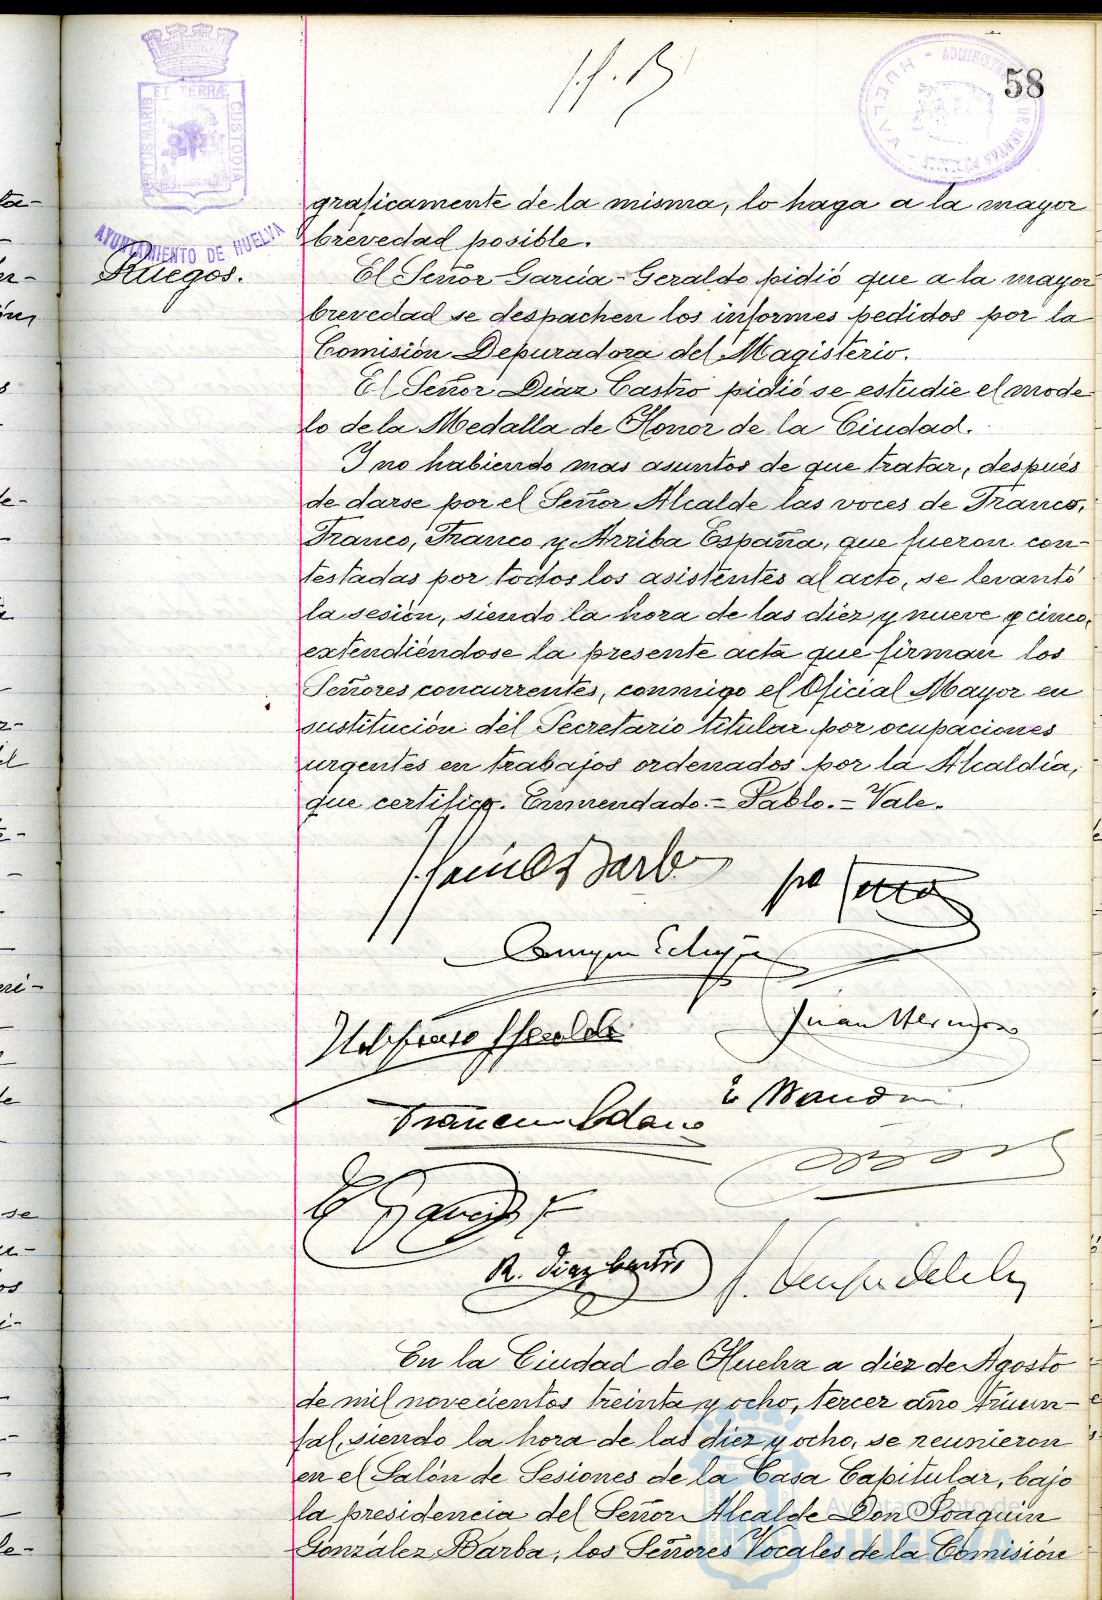 58
PORTUS MARIS ET TERRÆ CUSTODIA
AYUNTAMIENTO DE HUELVA
HUELVA
Ruegos.
graficamente de la misma, lo haga a la mayor
brevedad posible.
El Señor García-Geraldo pidió que a la mayor
brevedad se despachen los informes pedidos por la
Comisión Depuradora del Magisterio.
El Señor Díaz Castro pidió se estudie el mode-
lo de la Medalla de Honor de la Ciudad.
Y no habiendo mas asuntos de que tratar, después
de darse por el Señor Alcalde las voces de Franco,
Franco, Franco y Arriba España, que fueron con-
testadas por todos los asistentes al acto, se levantó
la sesión, siendo la hora de las diez y nueve y cinco,
extendiéndose la presente acta que firman los
Señores concurrentes, conmigo el Oficial Mayor en
sustitución del Secretario titular por ocupaciones
urgentes en trabajos ordenados por la Alcaldía,
que certifico. Enmendado.= Pablo.= Vale.
Barba
Juan
R. Díaz Castro
En la Ciudad de Huelva a diez de Agosto
de mil novecientos treinta y ocho, tercer año triun-
fal, siendo la hora de las diez y ocho, se reunieron
en el Salón de Sesiones de la Casa Capitular, bajo
la presidencia del Señor Alcalde Don Joaquín
González Barba, los Señores Vocales de la Comisión
Ayuntamiento de
HUELVA